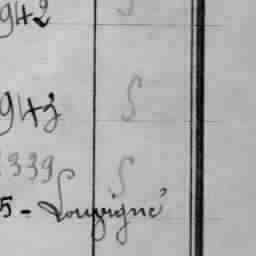 942 S
943 S
1339 S
5 - Louvigné